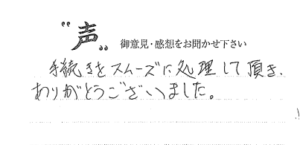 "声" 御意見・感想をお聞かせ下さい
手続きをスムーズに処理して頂き、
ありがとうございました。